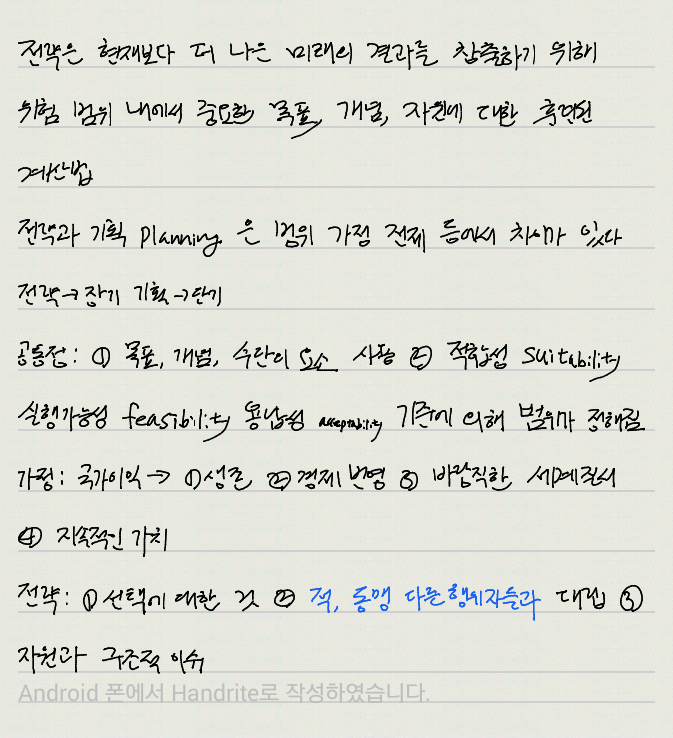 전략은 현재보다 더 나은 미래의 결과를 창출하기 위해
위험 범위 내에서 중요한 목표, 개념, 자원에 대한 훈련된
계산법
전략과 기획 planning 은 범위 가정 전제 등에서 차이가 있다
전략→장기 기획→단기
공통점: ① 목표, 개념, 수단의 요소 사용 ② 적합성 suitability
실행가능성 feasibility 용납성 acceptability 기준에 의해 범위가 정해짐
가정: 국가이익 → ①생존 ②경제 번영 ③ 바람직한 세계질서
④ 지속적인 가치
전략: ①선택에 대한 것 ② 적, 동맹 다른행위자들과 대립 ③
자원과 구조적 이슈
Android 폰에서 Handrite로 작성하였습니다.